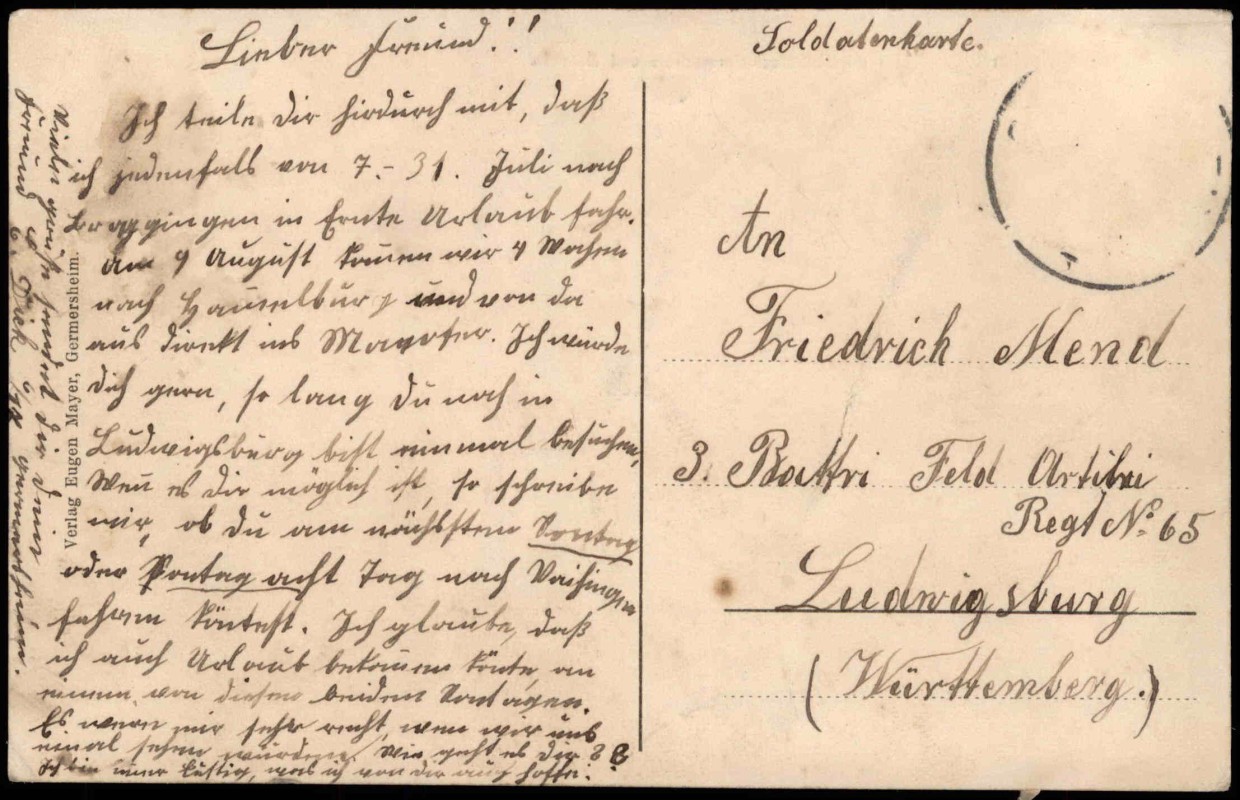 Lieber Freund!!
Ich teile Dir hirdurch mit, daß
ich jedenfals von 7.-31. Juli nach
in Ernte Urlaub fahr.
am 9 August komen wir 4 Wochen
nach Hamelburg und von da
aus direkt ins Manöfer. Ich würde
dich gern, so lang du noch in
Ludwigsburg bist einmal besuchen,
Wen es Dir möglich ist, so schreibe
mir, ob Du am nächsten Sontag
oder Sontag acht Tag nach Vaihingen
fahren köntest. Ich glaube, daß
ich auch Urlaub bekomen könte, an
einem von diesen beiden Sontagen.
Es were mir sehr recht, wen wir uns
einal sehen würden. Wie geht es Dir?
Ich bin imer lustig, was ich von dir auch hoffe.
Viele grüße sendet dir dein
Freund germersheim.
Verlag Eugen Mayer, Germersheim.
Soldatenkarte.
An
Friedrich Mend
3. Battri Feld Artilri
Regt No. 65
Ludwigsburg
(Württemberg.)